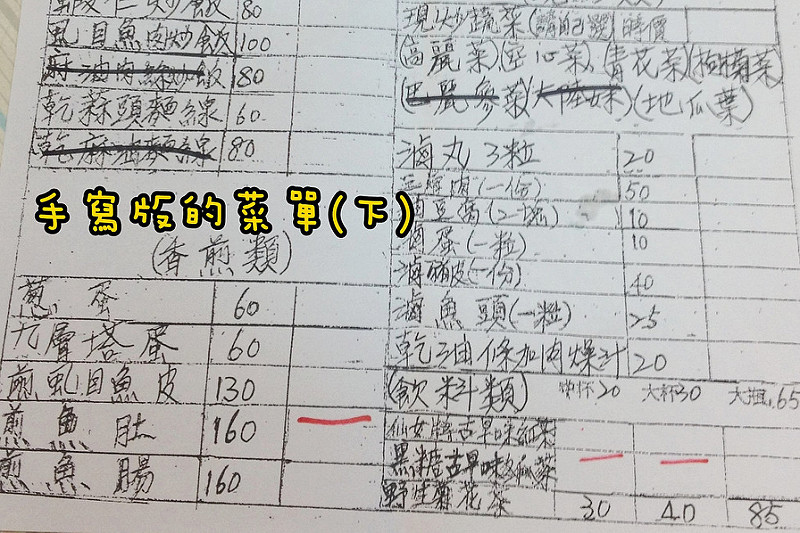 蝦仁炒飯 80
虱目魚肉炒飯 100
麻油肉絲炒飯 80
乾蒜頭麵線 60
乾麻油麵線 80
手寫版的菜單(下)
(香煎類)
蔥蛋 60
九層塔蛋 60
煎虱目魚皮 130
煎魚肚 160
煎魚腸 160
現炒蔬菜(請配號)時價
(高麗菜)(空心菜)(青花菜)(樹橍菜)
(巴麗參菜)(大陸妹)(地瓜葉)
滷丸3粒 20
肉(一份) 50
豆腐(2塊) 10
滷蛋(一粒) 10
滷豬皮(一份) 40
滷魚頭(一粒) 25
乾油條加肉燥汁 20
(飲料類) 中杯20 大杯30 大瓶65
仙女牌古早味紅茶
黑糖古早味冬瓜茶
野生菊花茶 30 40 85